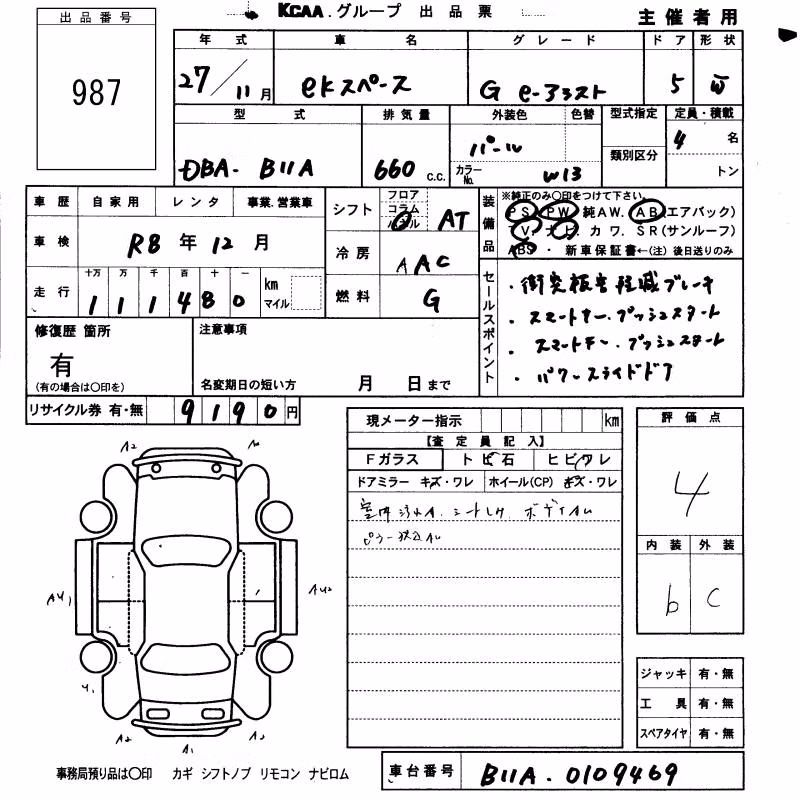 KCAA.グループ 出品票
主催者用
出品番号
987
年式 車名 グレード ドア 形状
27/11月 ekスペース G e-アシスト 5 W
型式 排気量 外装色 色替 型式指定 定員・積載
DBA-B11A 660c.c. パール カラーNo. W13 類別区分 4名 トン
車歴 自家用 レンタ 事業.営業車
車検 R8年12月
走行 十万 万 千 百 十 一 km マイル
111480
シフト フロア コラム AT
冷房 AAC
燃料 G
装備品 ※純正のみ○印をつけて下さい。
PS PW 純AW. AB(エアバック)
TV ナビ カワ. SR(サンルーフ)
ABS・ 新車保証書←(注)後日送りのみ
セールスポイント
・衝突被害軽減ブレーキ
・スマートキー.プッシュスタート
・スマートキー.プッシュスタート
・パワースライドドア
修復歴 箇所 注意事項
有
(有の場合は○印を) 名変期日の短い方 月 日まで
リサイクル券 有・無 9190円
現メーター指示 km
【査定員記入】
Fガラス トビ石 ヒビワレ
ドアミラー キズ・ワレ ホイール(CP) キズ・ワレ
室内汚れA.シートしみ.ボディAU
評価点
4
内装 外装
b C
A2
A1
ジャッキ 有・無
工具 有・無
スペアタイヤ 有・無
事務局預り品は○印 カギ シフトノブ リモコン ナビロム
車台番号 B11A-0109469